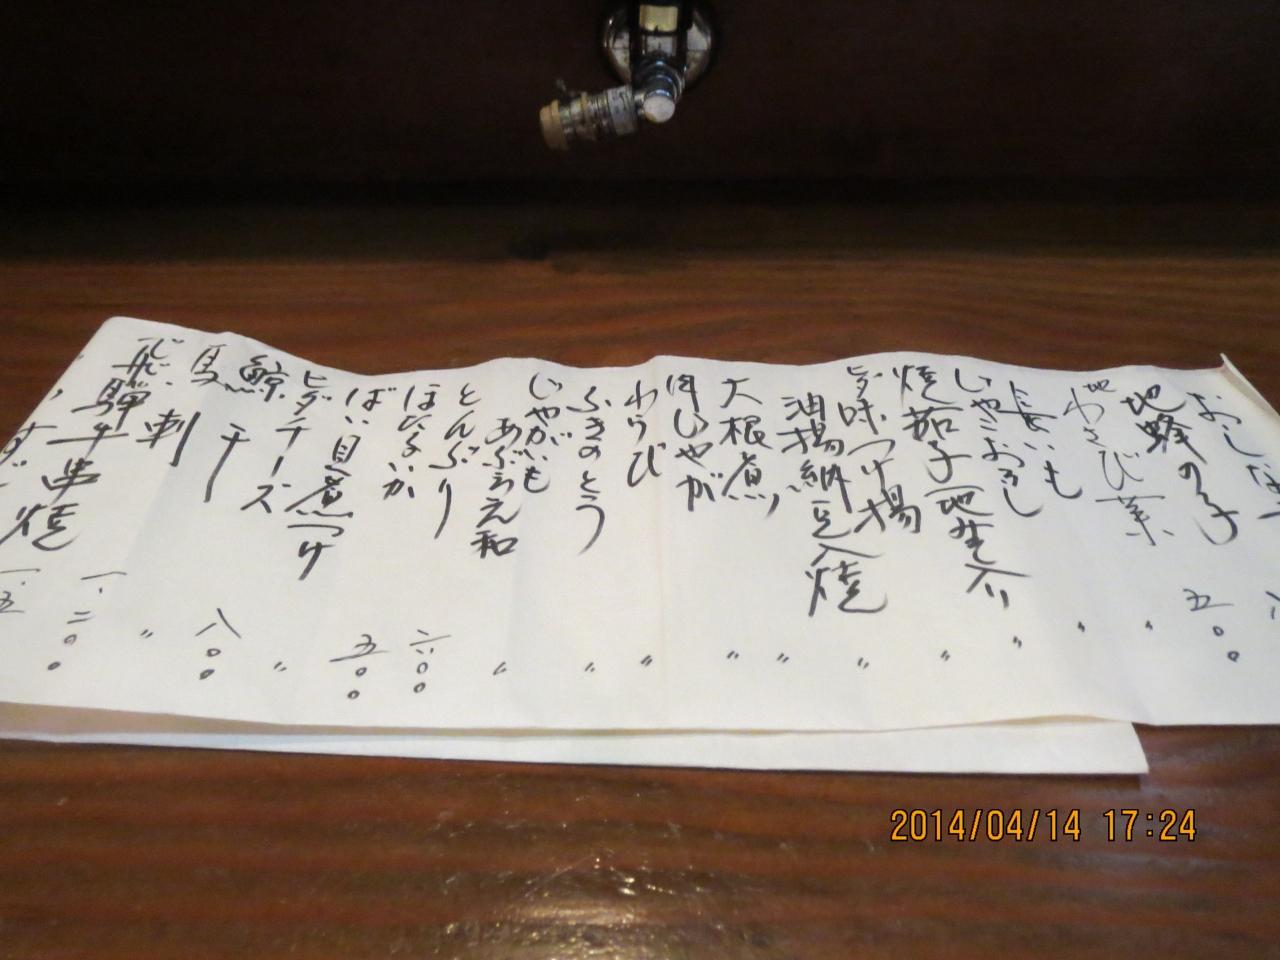 おしな
地蜂の子 五〇〇
地わさび菜 〃
長いも 〃
じゃこおろし 〃
焼茄子 〃
味つけ揚 〃
油揚納豆入焼 〃
大根煮 〃
肉じゃが
わらび 〃
ふきのとう 〃
じゃがいも
あぶらえ和 〃
とんぶり
ほたるいか 六〇〇
ばい貝煮つけ 五〇〇
チーズ 〃
鯨 八〇〇
馬刺 〃
飛騨牛串焼 一、二〇〇
2014/04/14 17:24